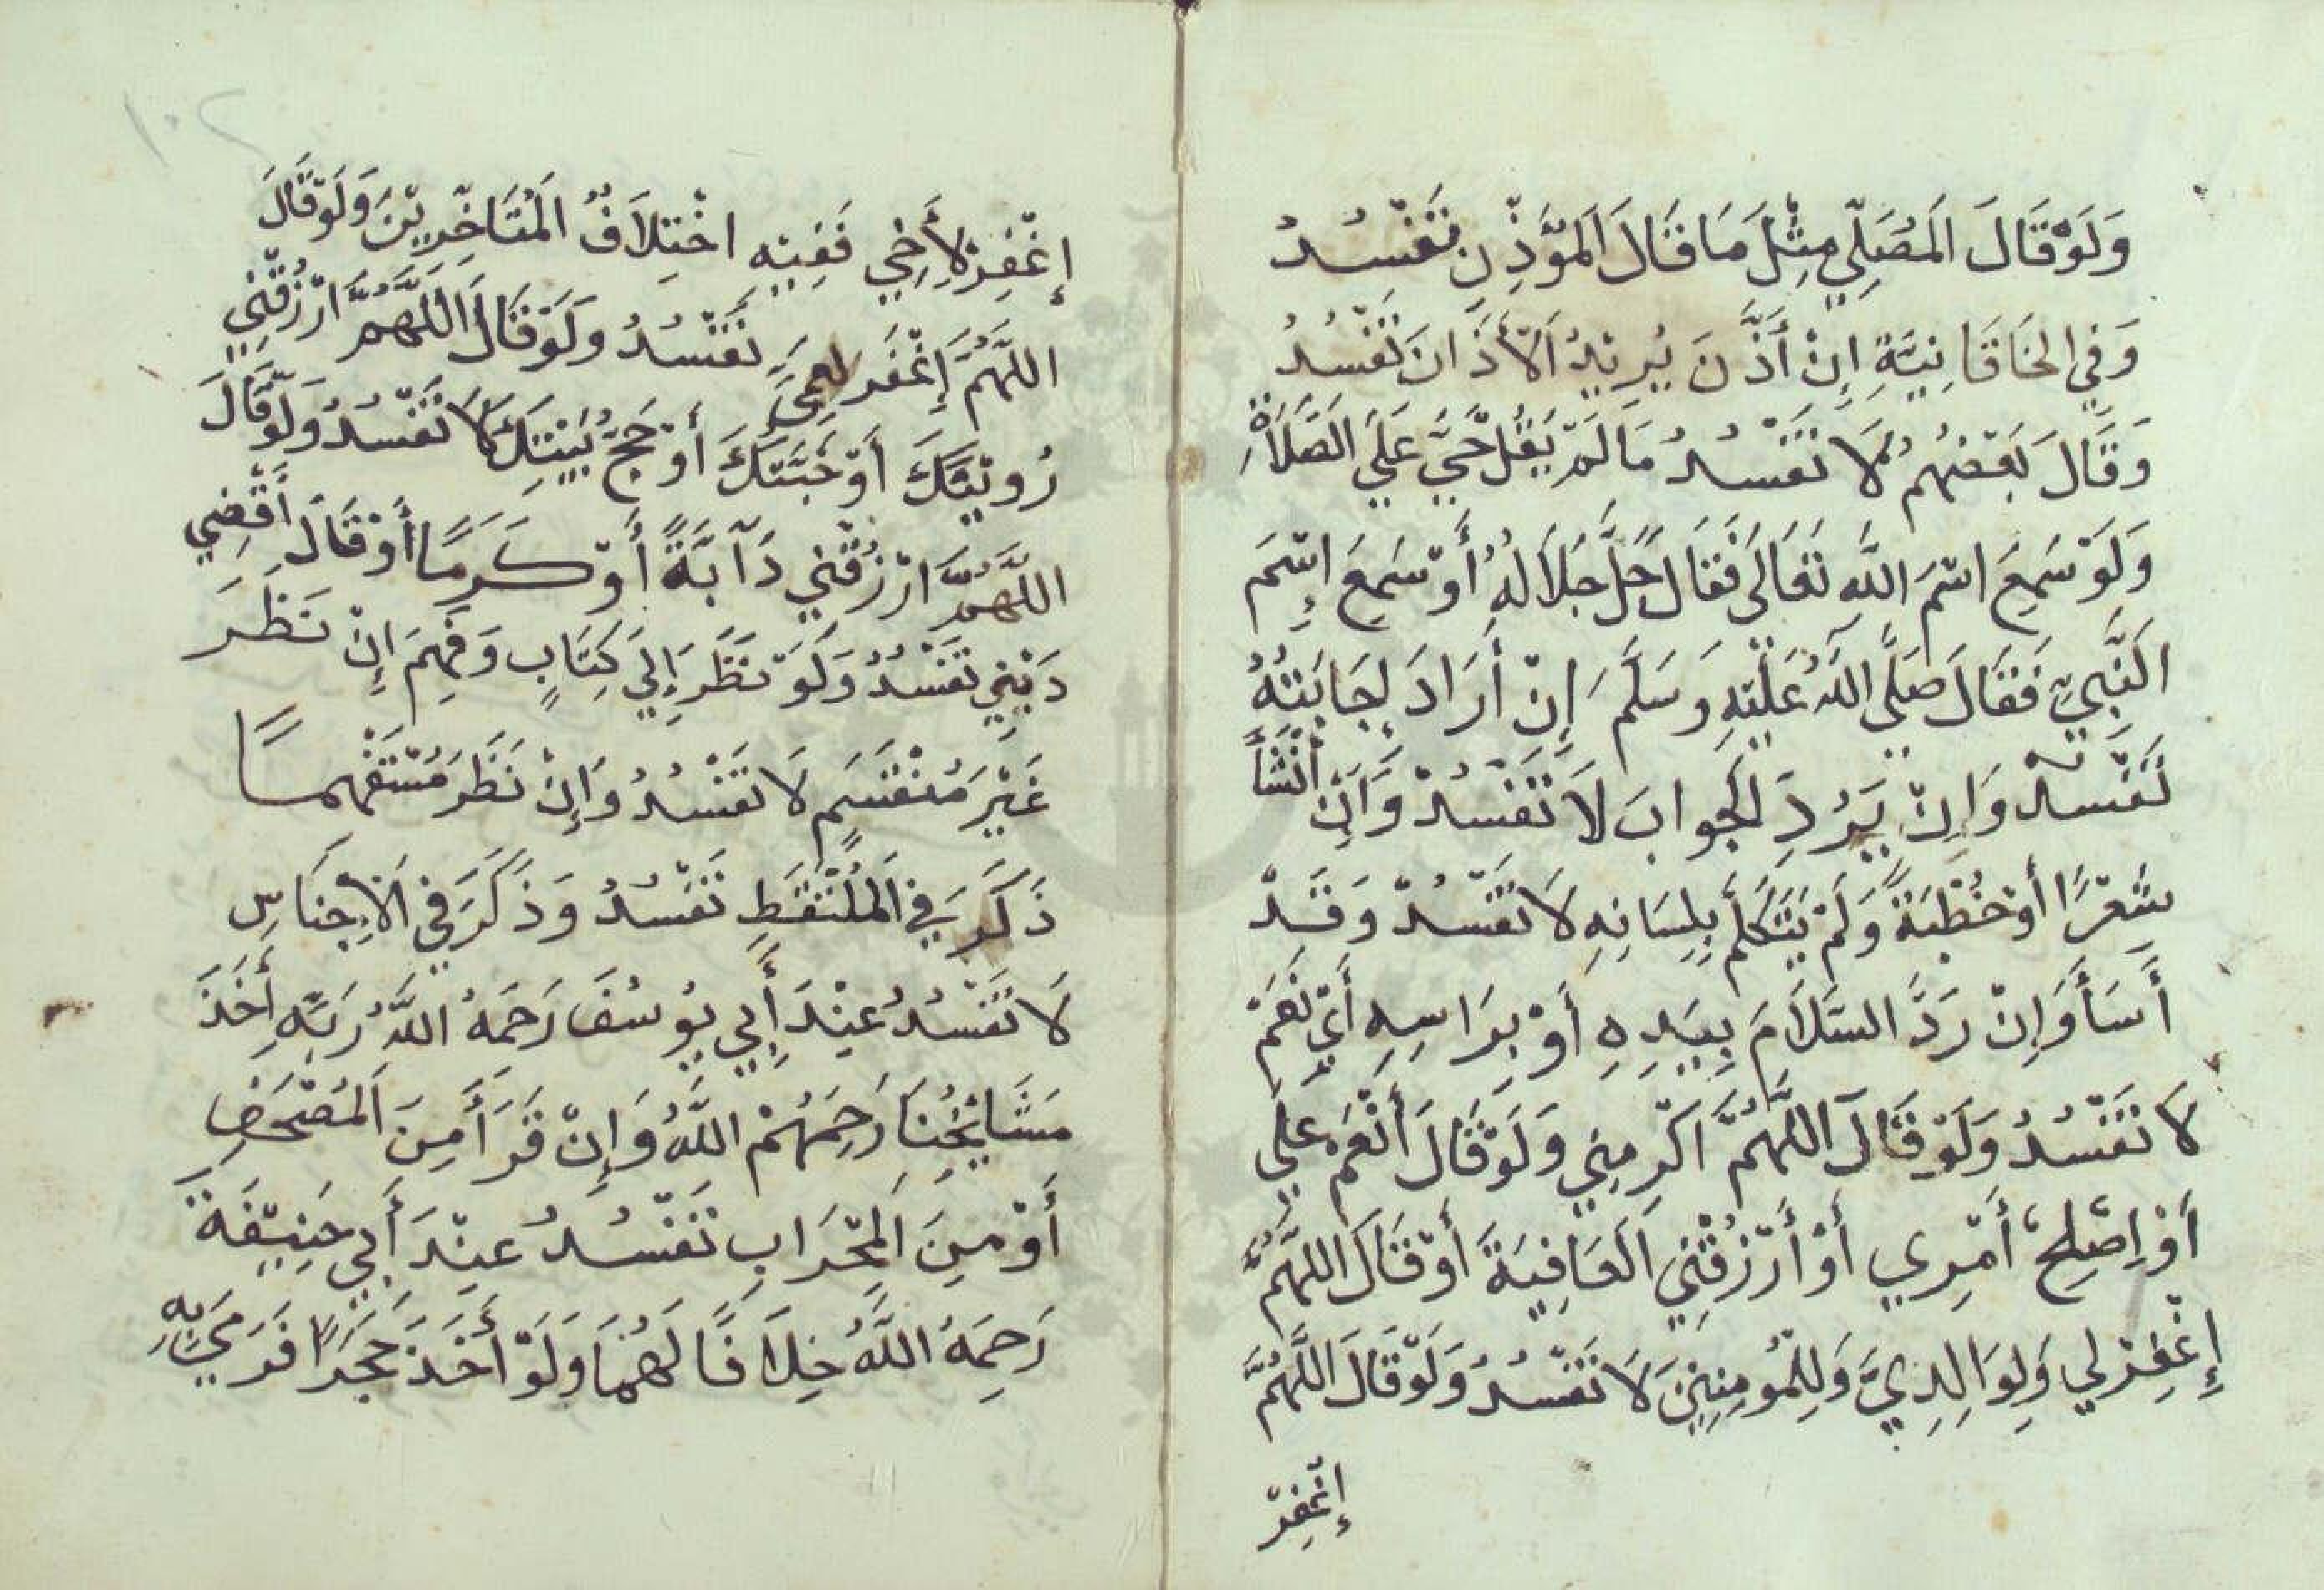 وَلَوْ قَالَ الْمُصَلِّي مِثْلَ مَا قَالَ الْمُؤَذِّنِ تَفْسُدُ
وَفِي الْخَاقَانِيَّةِ إِنْ أَذَّنَ يُرِيْدُ اَلْأَذَانَ تَفْسُدُ
وَقَالَ بَعْضُهُمْ لَا تَفْسُدُ مَا لَمْ يَقُلْ حَيَّ عَلَى الصَّلَاةِ
وَلَوْ سَمِعَ اسْمَ اللَّهِ تَعَالَى فَقَالَ جَلَّ جَلَالَهُ أَوْ سَمِعَ إِسْمَ
النَّبِيِّ فَقَالَ صَلَّى اللَّهُ عَلَيْهِ وَسَلَّمَ إِنْ أَرَادَ إِجَابَتَهُ
تَفْسُدْ وَإِنْ يَرُدِ الْجَوابَ لَا تَفْسُدْ وَإِنْ أَنْشَأَ
شِعْرًا أَوْ خُطْبَةً وَلَمْ يَتَكَلَّمْ بِلِسَانِهِ لَا تَفْسُدْ وَقَدْ
أَسَأَ وَإِنْ رَدَّ السَّلَامَ بِيَدِهِ أَوْ بِرَاسِهِ أَيْ نَعَمْ
لَا تَفْسُدُ وَلَوْ قَالَ اللَّهُمَّ اَكْرِمْنِي وَلَوْ قَالَ أَنْعِمْ عَلَي
أَوْ اِصْلِحْ أَمْرِي أَوْ أَرْزُقْنِي الْعَافِيَةَ أَوْ قَالَ اللَّهُمَّ
إِغْفِرْ لِي وَلِوَالِدِيَّ وَلِلْمُومِنِيْنَ لَا تَفْسُدُ وَلَوْ قَالَ اللَّهُمَّ
إِغْفِرْ
١٠٢
إِغْفِرْ لِأَخِي فَفِيْهِ اخْتِلَافُ الْمُتَاَخِّرِيْنَ وَلَوْ قَالَ
اللَّهُمَّ إِغْفَر لِعَمِي تَفْسُدُ وَلَوْ قَالَ اللَّهُمَّ ارْزُقْنِي
رُوْيَتَكَ أَوْ جَنَّتَكَ أَوْ حَجَّ بَيْتِكَ لَا تَفْسُدُ وَلَوْ قَالَ
اللَّهُمَّ ارْزُقْنِي دَآبَّةً أَوْ كَرَمًا أَوْ قَالَ أَقْضِي
دَيْنِي تَفْسُدُ وَلَوْ نَظَرَ إِلَي كِتَابٍ وَفَهِمَ إِنْ نَظَرَ
غَيْرَ مُسْتَفْهِمٍ لَا تَفْسُدُ وَإِنْ نَظَرَ مُسْتَفْهِمًا
ذَكَرَ فِي الْمُلْتَقَطِ تَفْسُدُ وَذَكَرَ فِي الْاِجْنَاسِ
لَا تَفْسُدُ عِنْدَ أَبِي يُوسُفَ رَحِمَهُ اللَّهُ وَبِهِ أَخَذَ
مَشَايْخُنَا رَحِمَهُمْ اللَّهُ وَإِنْ قَرَأَ مِنَ الْمُصْحَفِ
أَوْ مِنَ الْمِحْرَابِ تَفْسُدُ عِنْدَ أَبِي حَنِيْفَةَ
رَحِمَهُ اللَّهُ خِلَافًا لَهُمَا وَلَوْ أَخَذَ حَجَرًا فَرَمَي بِهِ